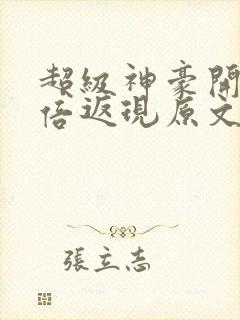 超級神豪開
倍返現原文
張立志